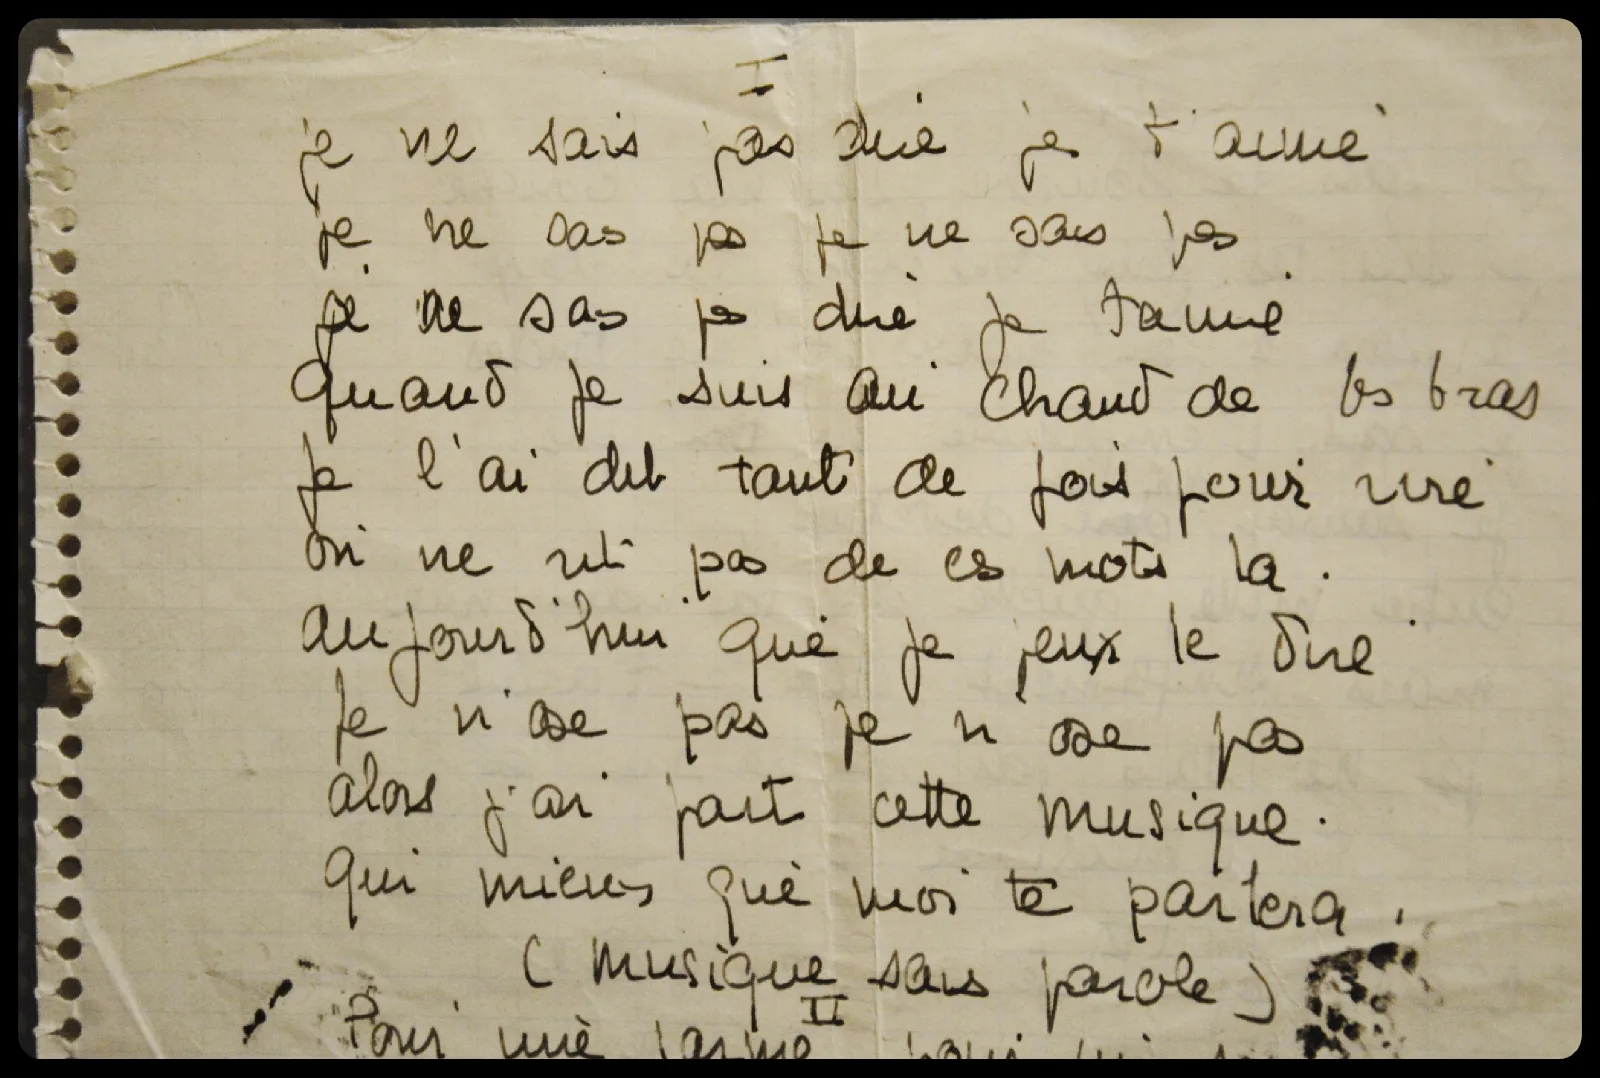 I
je ne sais pas dire je t'aime
je ne sais pas je ne sais pas
je ne sais pas dire je t'aime
Quand je suis au chaud de tes bras
je l'ai dit tant de fois pour rire
on ne rit pas de ces mots la.
aujourd'hui que je peux le dire
Je n'ose pas je n'ose pas
alors j'ai fait cette musique.
Qui mieux que moi te parlera.
(musique sans parole)
II
Pour une larme pour